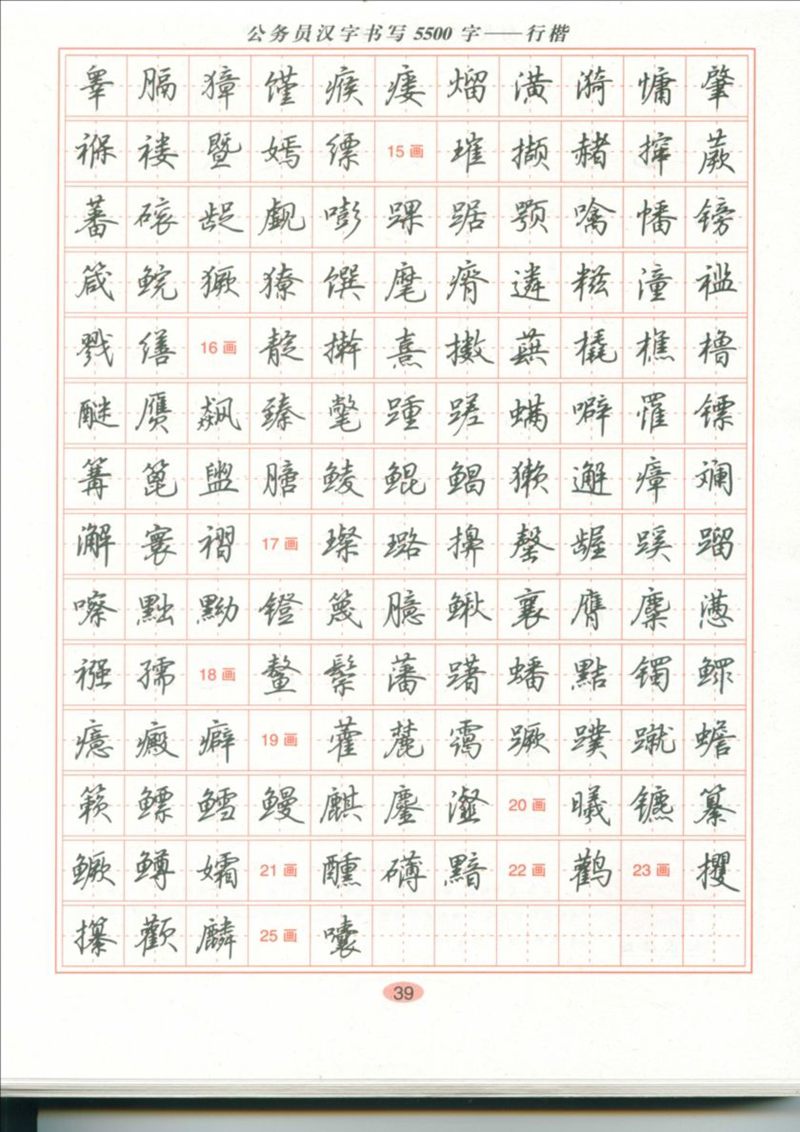 公务员汉字书写5500字——行楷
睾 膈 獐 馑 瘊 瘘 熘 潢 漪 慵 肇
褓 褛 暨 嫣 缥 15画 璀 撷 赭 撺 蕨
蕃 磙 龊 觑 嘭 踝 踞 颚 噙 幡 镑
箴 鲩 獗 獠 馔 麾 瘠 遴 糍 潼 褴
戮 缮 16画 靛 擀 熹 擞 蕻 橇 樵 橹
醚 赝 飙 臻 氅 踵 蹉 螨 噼 罹 镖
篝 篦 盥 膳 鲮 鲲 鲳 獭 邂 瘴 斓
澥 寰 褶 17画 璨 璐 擤 罄 龌 蹊 蹓
嚓 黜 黝 镫 篾 臆 鳅 襄 膺 糜 懑
襁 孺 18画 鳌 鬃 藩 躇 蟠 黠 镯 鳏
癔 癜 癖 19画 藿 麓 霭 蹶 蹼 蹴 蟾
籁 鳔 鳕 鳗 麒 鏖 瀣 20画 曦 镳 纂
鳜 鳟 孀 21画 醺 礴 黯 22画 鹳 23画 攫
攥 颧 麟 25画 囔
39